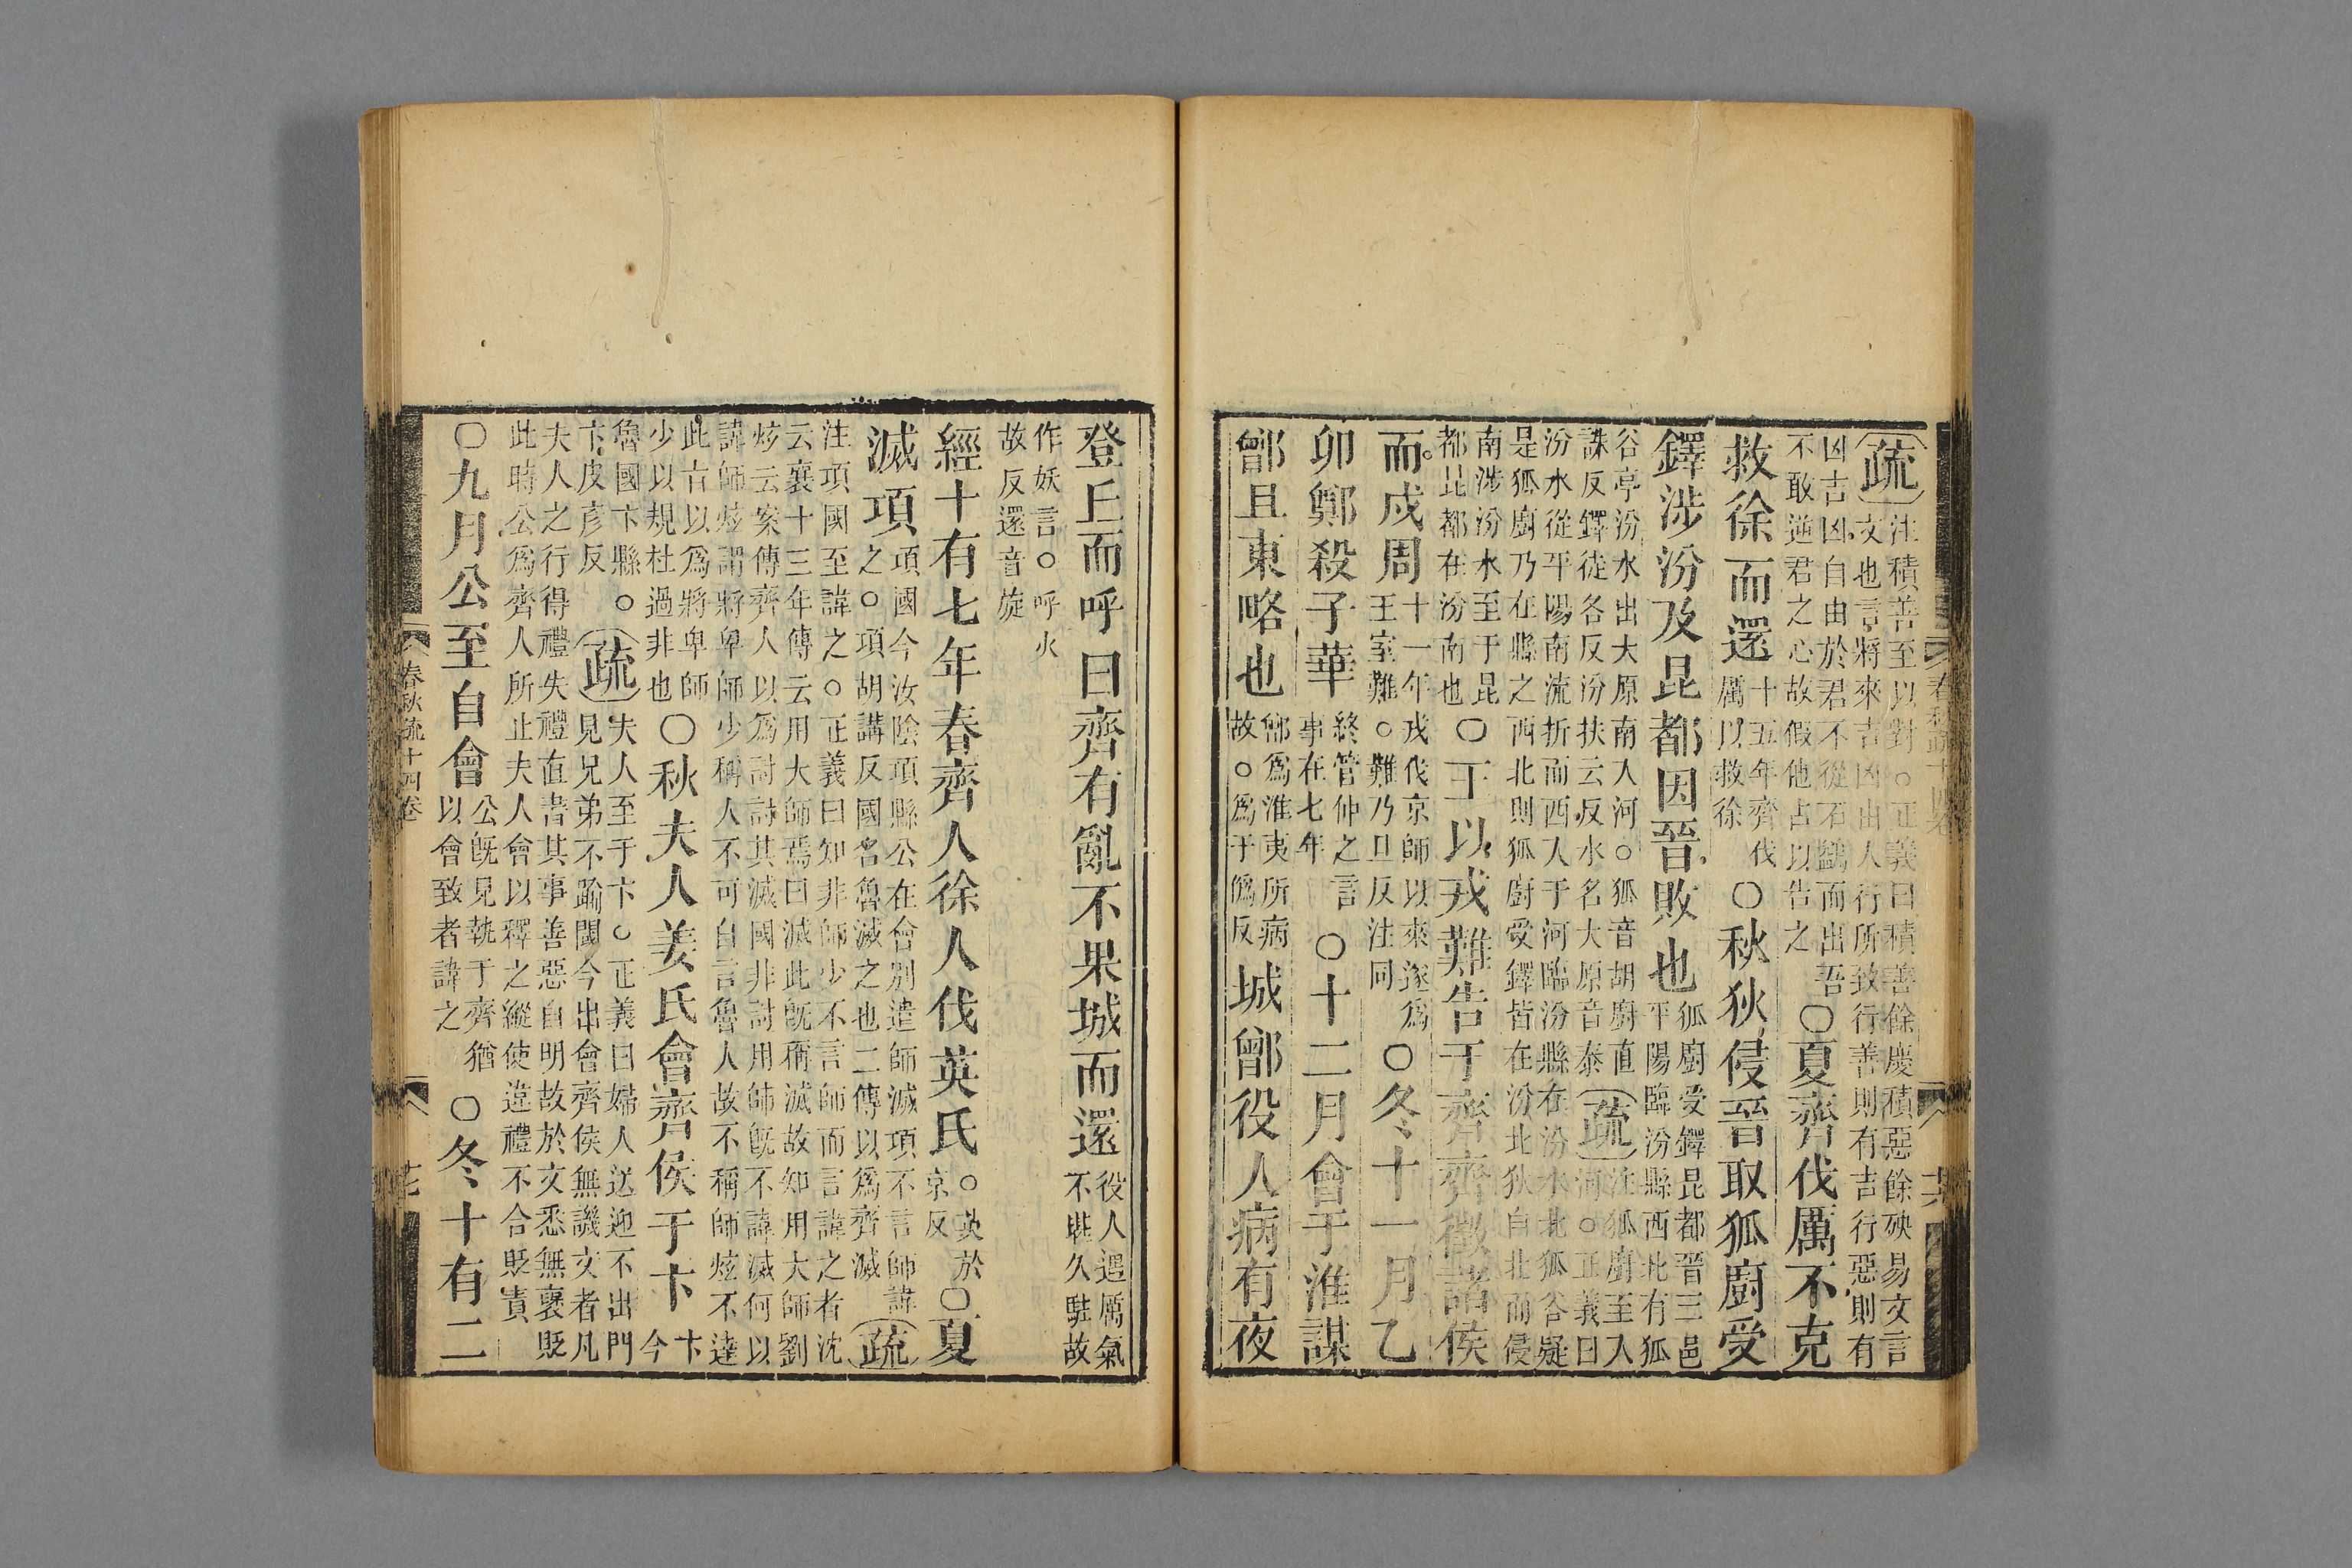 疏注積善至以對○正義曰積善餘慶積惡餘殃易文言文也言將來吉凶出人行所致行善則有吉行惡則有
凶吉凶自由於君不從石鷁而出吾不敢逆君之心故假他占以告之○夏齊伐厲不克
救徐而還十五年齊伐厲以救徐○秋狄侵晉取狐廚受
鐸涉汾及昆都因晉敗也狐廚受鐸昆都晉三邑平陽臨汾縣西北有狐
谷亭汾水出大原南入河○狐音胡廚直誅反鐸徒各反汾扶云反水名大原音泰疏注狐廚至入河○正義曰
汾水從平陽南流折而西入于河臨汾縣在汾水北狐谷疑是狐廚乃在縣之西北則狐廚受鐸皆在汾北狄自北而侵
南涉汾水至于昆都昆都在汾南也○王以戎難告于齊齊徵諸侯
而戍周十一年戎伐京師以來遂爲王室難○難乃旦反注同○冬十一月乙
卯鄭殺子華終管仲之言事在七年○十二月會于淮謀
鄫且東略也鄫爲淮夷所病故○爲于僞反城鄫役人病有夜
登丘而呼曰齊有亂不果城而還役人遇厲氣不堪久駐故
作妖言○呼火故反還音旋
經十有七年春齊人徐人伐英氏○英於京反○夏
滅項項國今汝陰項縣公在會別遣師滅項不言師諱之○項胡講反國名魯滅之也二傳以爲齊滅疏
注項國至諱之○正義曰知非師少不言師而言諱之者沈云襄十三年傳云用大師焉曰滅此旣稱滅故知用大師劉
炫云案傳齊人以爲討討其滅國非討用師旣不諱滅何以諱師炫謂將卑師少稱人不可自言魯人故不稱師炫不達
此古以爲將卑師少以規杜過非也○秋夫人姜氏會齊侯于卞卞今
魯國卞縣○卞皮彥反疏夫人至于卞○正義曰婦人送迎不出門見兄弟不踰閾今出會齊侯無譏文者凡
夫人之行得禮失禮直書其事善惡自明故於文悉無褒貶此時公爲齊人所止夫人會以釋之縱使違禮不合貶責
○九月公至自會公旣見執于齊猶以會致者諱之○冬十有二
春秋疏十四卷